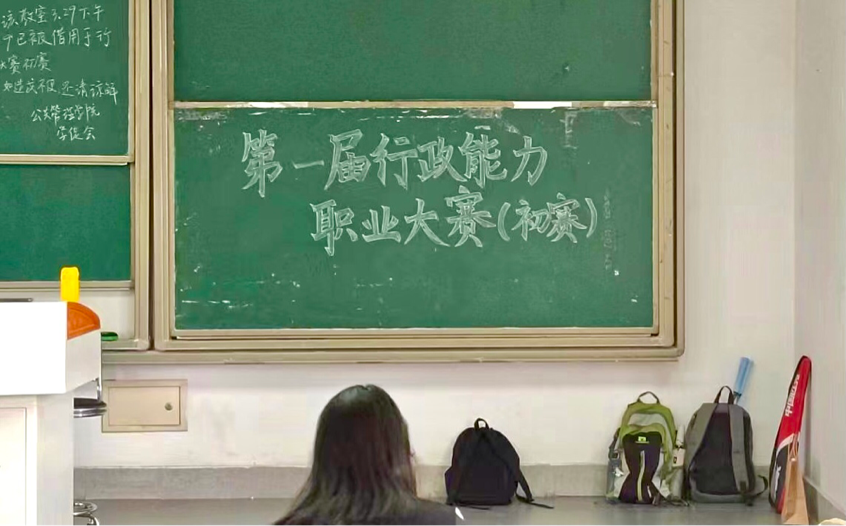 该教室3.29下午
已被借用于行
大赛初赛
如造成不便,还请谅解
公共管理学院
学促会
第一届行政能力
职业大赛(初赛)